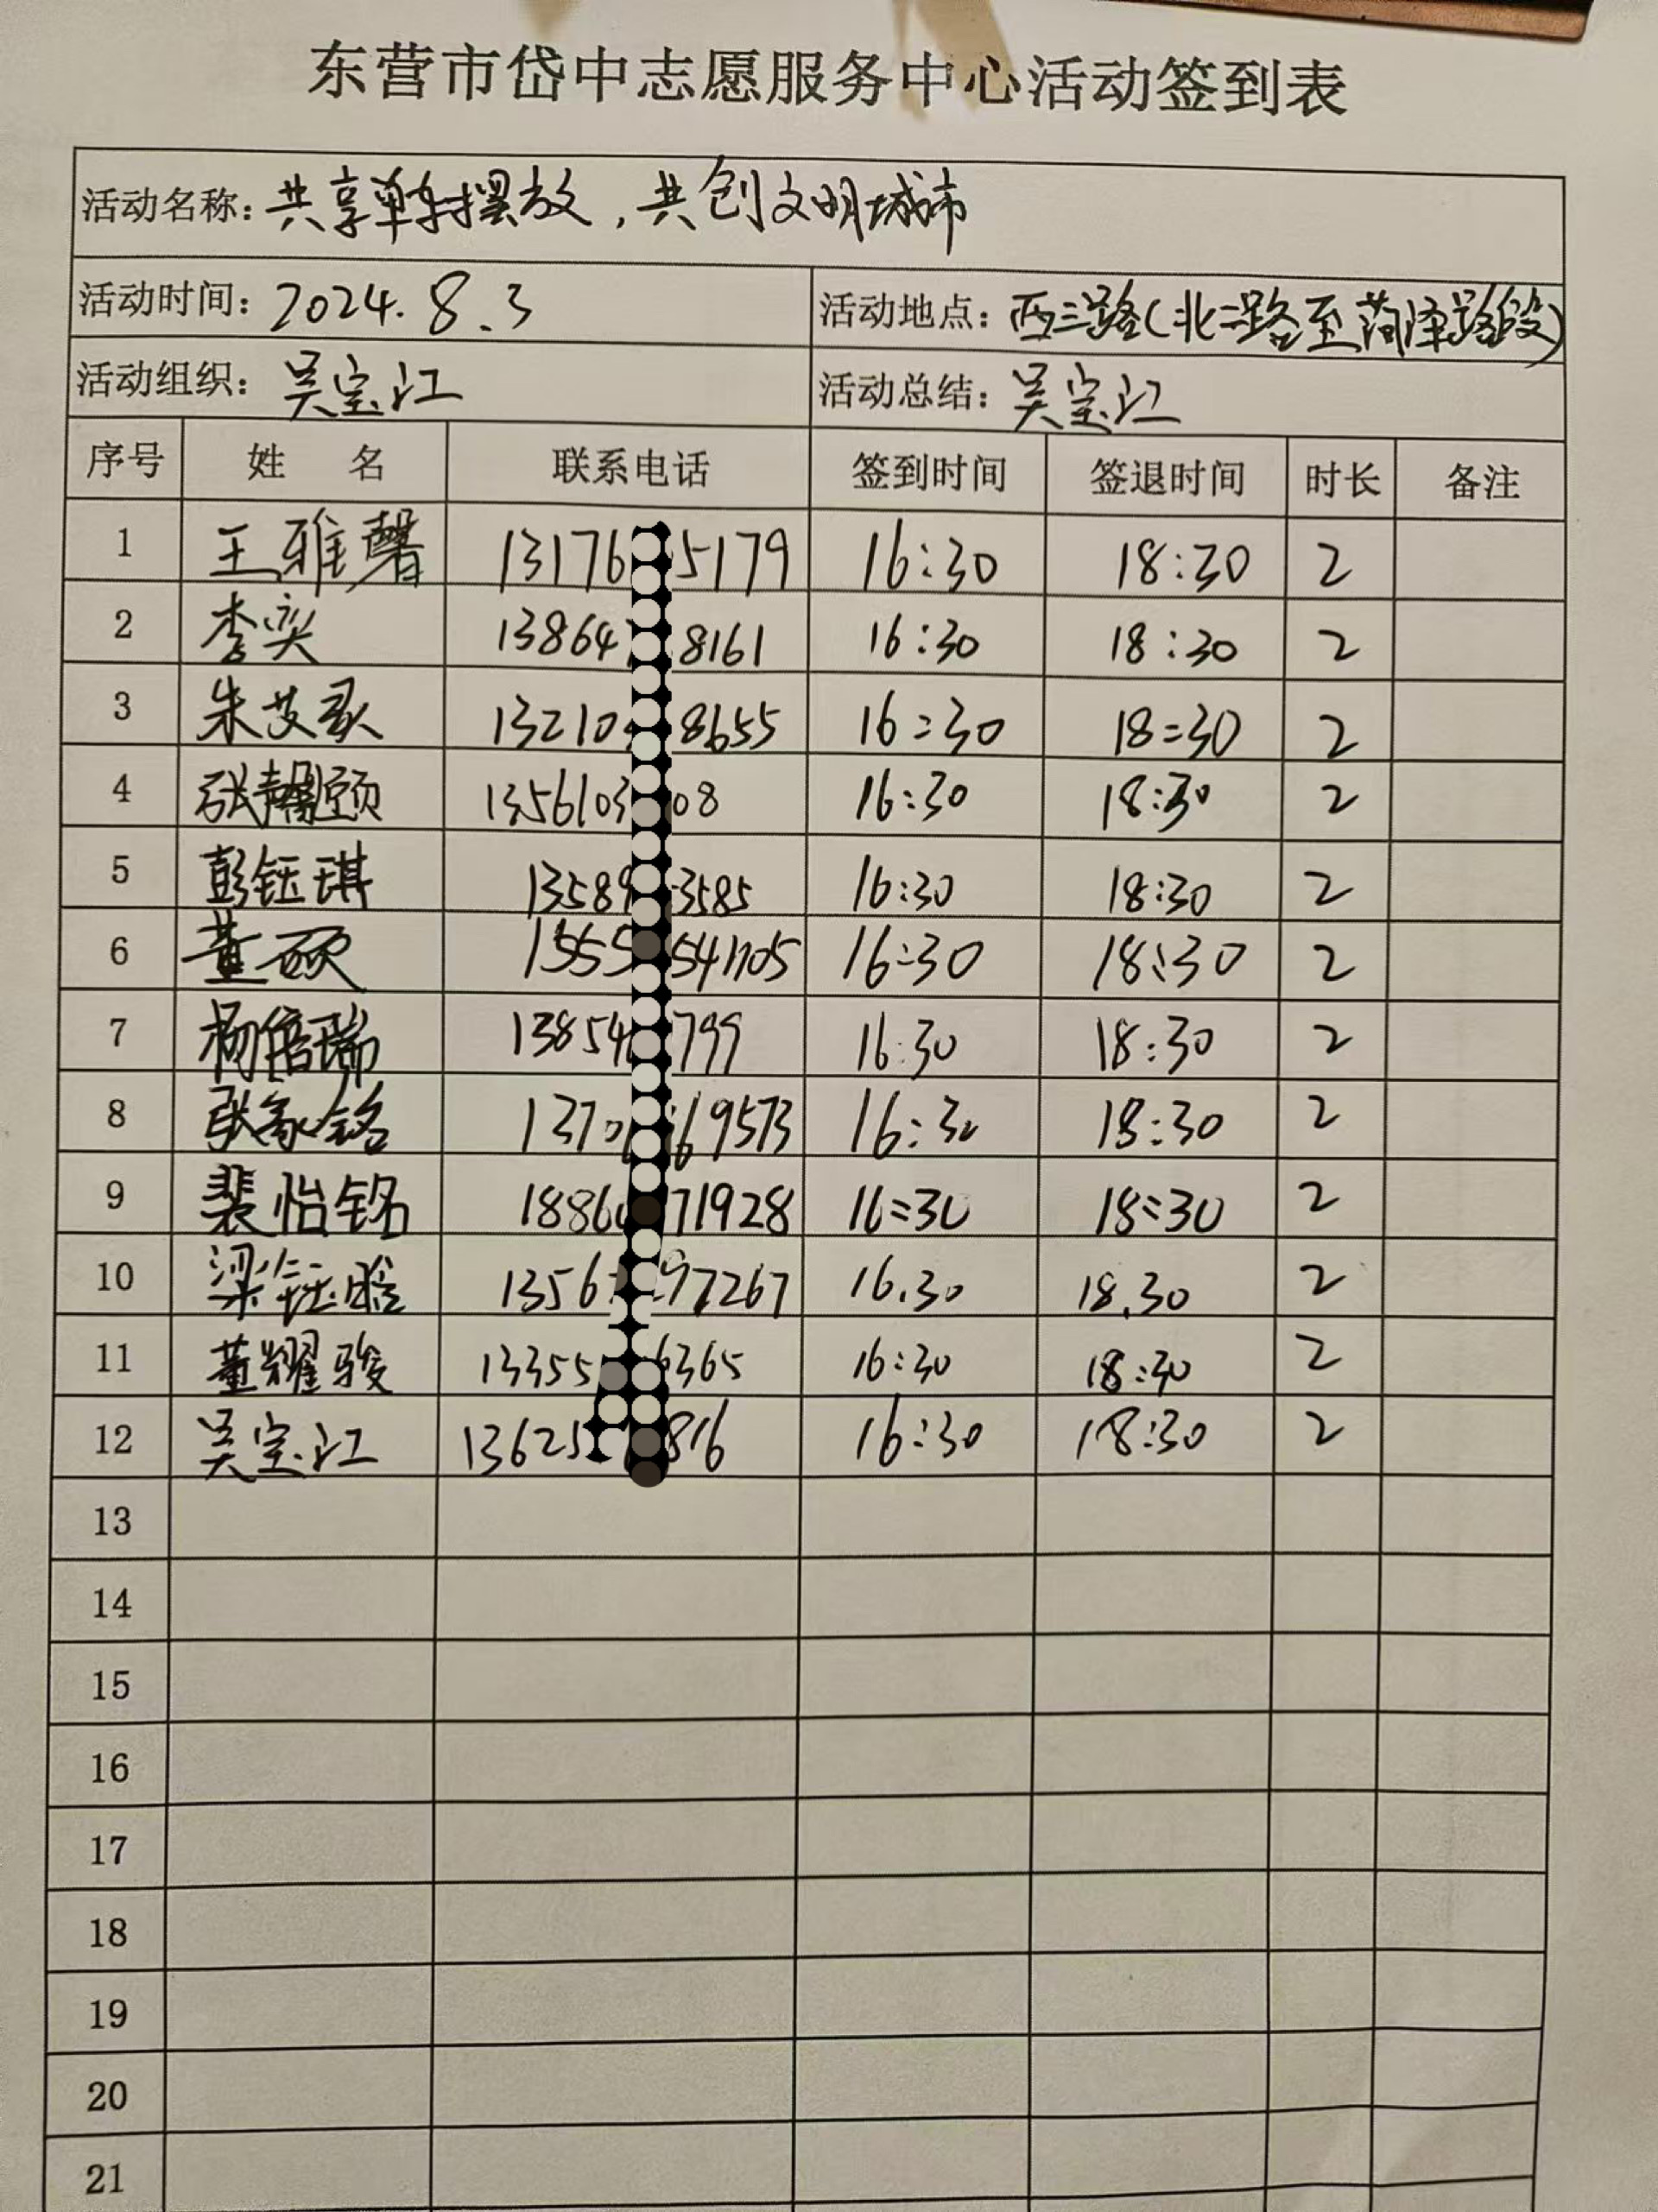 东营市岱中志愿服务中心活动签到表
活动名称：共享单车摆放，共创文明城市
活动时间：2024.8.3 活动地点：西三路(北二路至菏泽路段)
活动组织：吴宝江 活动总结：吴宝江
序号 姓 名 联系电话 签到时间 签退时间 时长 备注
1 王雅馨 13176 5179 16:30 18:30 2
2 李奕 13864 8161 16:30 18:30 2
3 朱艾灵 13210 8655 16:30 18:30 2
4 张馨颐 1356103 08 16:30 18:30 2
5 彭钰琪 13589 3585 16:30 18:30 2
6 董硕 1555 541705 16:30 18:30 2
7 杨倍瑞 13854 799 16:30 18:30 2
8 张家铭 1370 69573 16:30 18:30 2
9 裴怡铭 1886 71928 16:30 18:30 2
10 梁钰晗 1356 97267 16.30 18.30 2
11 董耀骏 13355 6365 16:30 18:30 2
12 吴宝江 13625 816 16:30 18:30 2
13
14
15
16
17
18
19
20
21